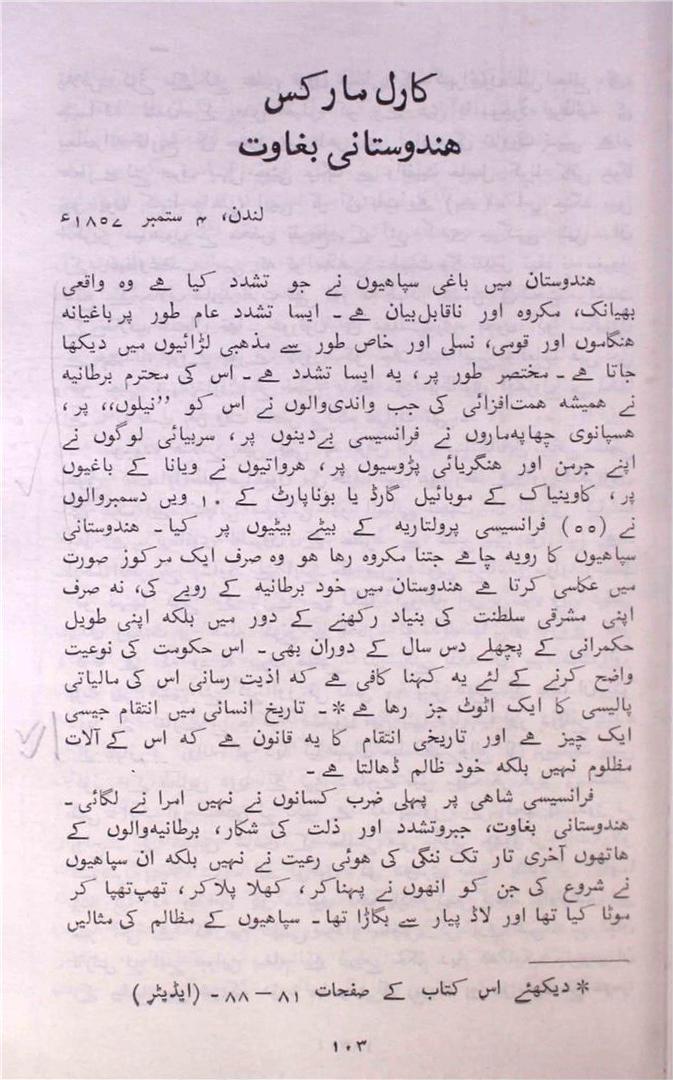 کارل مارکس
هندوستانی بغاوت
لندن، ۴ ستمبر ۱۸۵۷ء
هندوستان میں باغی سپاهیوں نے جو تشدد کیا هے وہ واقعی
بھیانک، مکروہ اور ناقابل‌بیان هے۔ ایسا تشدد عام طور پر باغیانہ
هنگاموں اور قومی، نسلی اور خاص طور سے مذهبی لڑائیوں میں دیکھا
جاتا هے۔ مختصر طور پر، یہ ایسا تشدد هے۔ اس کی محترم برطانیہ
نے همیشہ همت‌افزائی کی جب واندی‌والوں نے اس کو ”نیلوں،، پر،
هسپانوی چھاپہ‌ماروں نے فرانسیسی بےدینوں پر، سربیائی لوگوں نے
اپنے جرمن اور هنگریائی پڑوسیوں پر، هرواتیوں نے ویانا کے باغیوں
پر، کاوینیاک کے موبائیل گارڈ یا بوناپارٹ کے ۱۰ ویں دسمبروالوں
نے (۵۵) فرانسیسی پرولتاریہ کے بیٹے بیٹیوں پر کیا۔ هندوستانی
سپاهیوں کا رویہ چاهے جتنا مکروہ رها هو وہ صرف ایک مرکوز صورت
میں عکاسی کرتا هے هندوستان میں خود برطانیہ کے رویے کی، نہ صرف
اپنی مشرقی سلطنت کی بنیاد رکھنے کے دور میں بلکہ اپنی طویل
حکمرانی کے پچھلے دس سال کے دوران بھی۔ اس حکومت کی نوعیت
واضح کرنے کے لئے یہ کہنا کافی هے کہ اذیت رسانی اس کی مالیاتی
پالیسی کا ایک اٹوٹ جز رها هے*۔ تاریخ انسانی میں انتقام جیسی
ایک چیز هے اور تاریخی انتقام کا یہ قانون هے کہ اس کے آلات
مظلوم نہیں بلکہ خود ظالم ڈھالتا هے۔
فرانسیسی شاهی پر پہلی ضرب کسانوں نے نہیں امرا نے لگائی۔
هندوستانی بغاوت، جبروتشدد اور ذلت کی شکار، برطانیہ‌والوں کے
هاتھوں آخری تار تک ننگی کی هوئی رعیت نے نہیں بلکہ ان سپاهیوں
نے شروع کی جن کو انھوں نے پہناکر، کھلا پلاکر، تھپ‌تھپا کر
موٹا کیا تھا اور لاڈ پیار سے بگاڑا تھا۔ سپاهیوں کے مظالم کی مثالیں
* دیکھئے اس کتاب کے صفحات ۸۱ — ۸۸۔ (ایڈیٹر)
۱۰۳